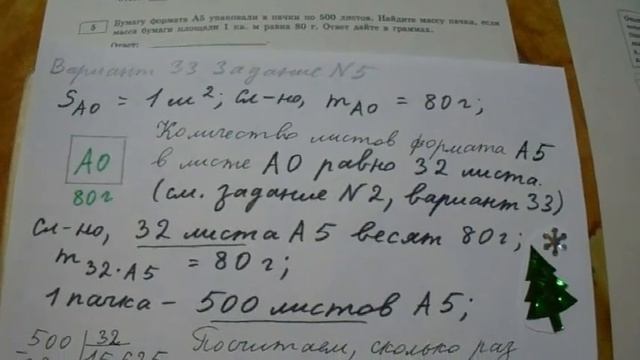 5 Бумагу формата А5 упаковали в пачки по 500 листов. Найдите массу пачки, если
масса бумаги площади 1 кв. м равна 80 г. Ответ дайте в граммах.
Ответ:
Вариант 33 Задание N5
SA0 = 1 м²; сл-но, mA0 = 80 г;
Количество листов формата А5
в листе А0 равно 32 листа.
(см. задание N2, вариант 33)
А0
80 г
сл-но, 32 листа А5 весят 80 г;
m32·А5 = 80 г;
1 пачка – 500 листов А5;
500 32
Посчитаем, сколько раз
15,625